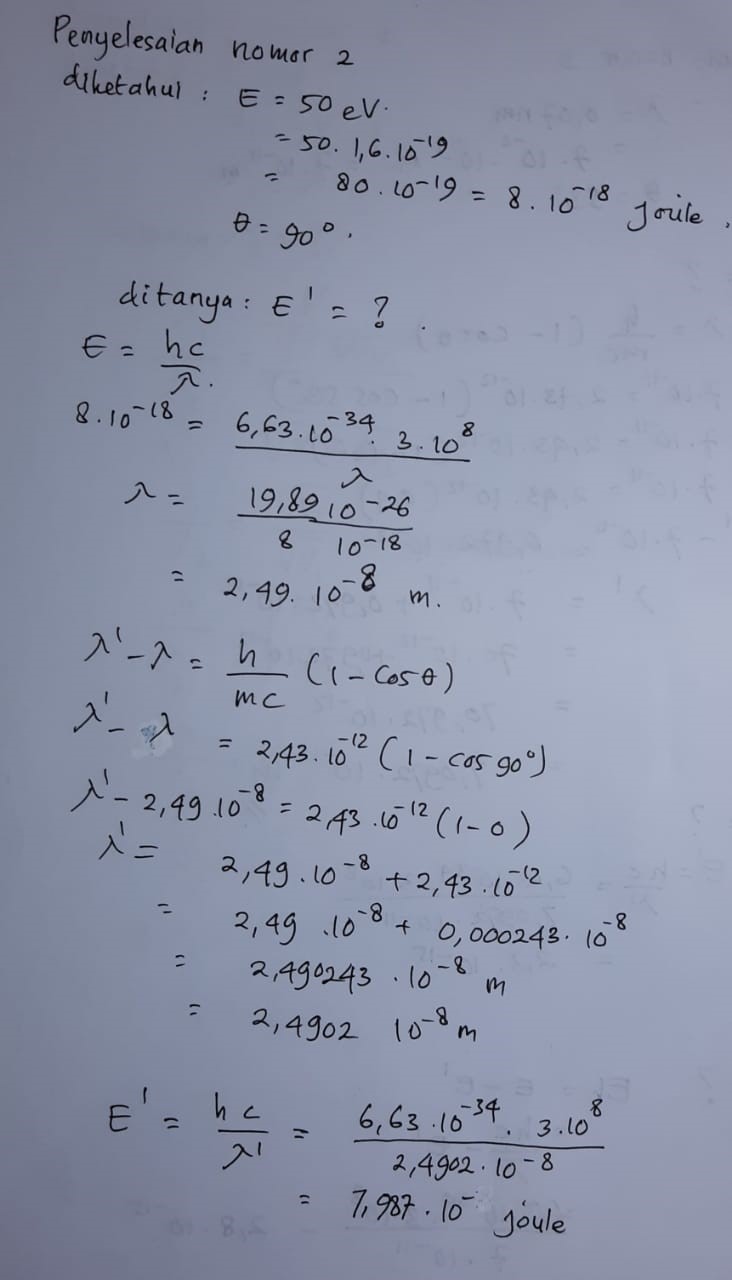 Penyelesaian nomor 2
diketahui : E = 50 eV.
= 50. 1,6.10⁻¹⁹
= 80.10⁻¹⁹ = 8.10⁻¹⁸ joule,
θ = 90°.
ditanya: E' = ?
E = hc/λ.
8.10⁻¹⁸ = 6,63.10⁻³⁴. 3.10⁸ / λ
λ = 19,89 10⁻²⁶ / 8 10⁻¹⁸
= 2,49. 10⁻⁸ m.
λ' - λ = h/mc (1 - cos θ)
λ' - λ = 2,43.10⁻¹² (1 - cos 90°)
λ' - 2,49.10⁻⁸ = 2,43.10⁻¹² (1-0)
λ' = 2,49.10⁻⁸ + 2,43.10⁻¹²
= 2,49 .10⁻⁸ + 0,000243. 10⁻⁸
= 2,490243 .10⁻⁸ m
= 2,4902 10⁻⁸ m
E' = hc/λ' = 6,63.10⁻³⁴. 3.10⁸ / 2,4902.10⁻⁸
= 7,987.10⁻ joule